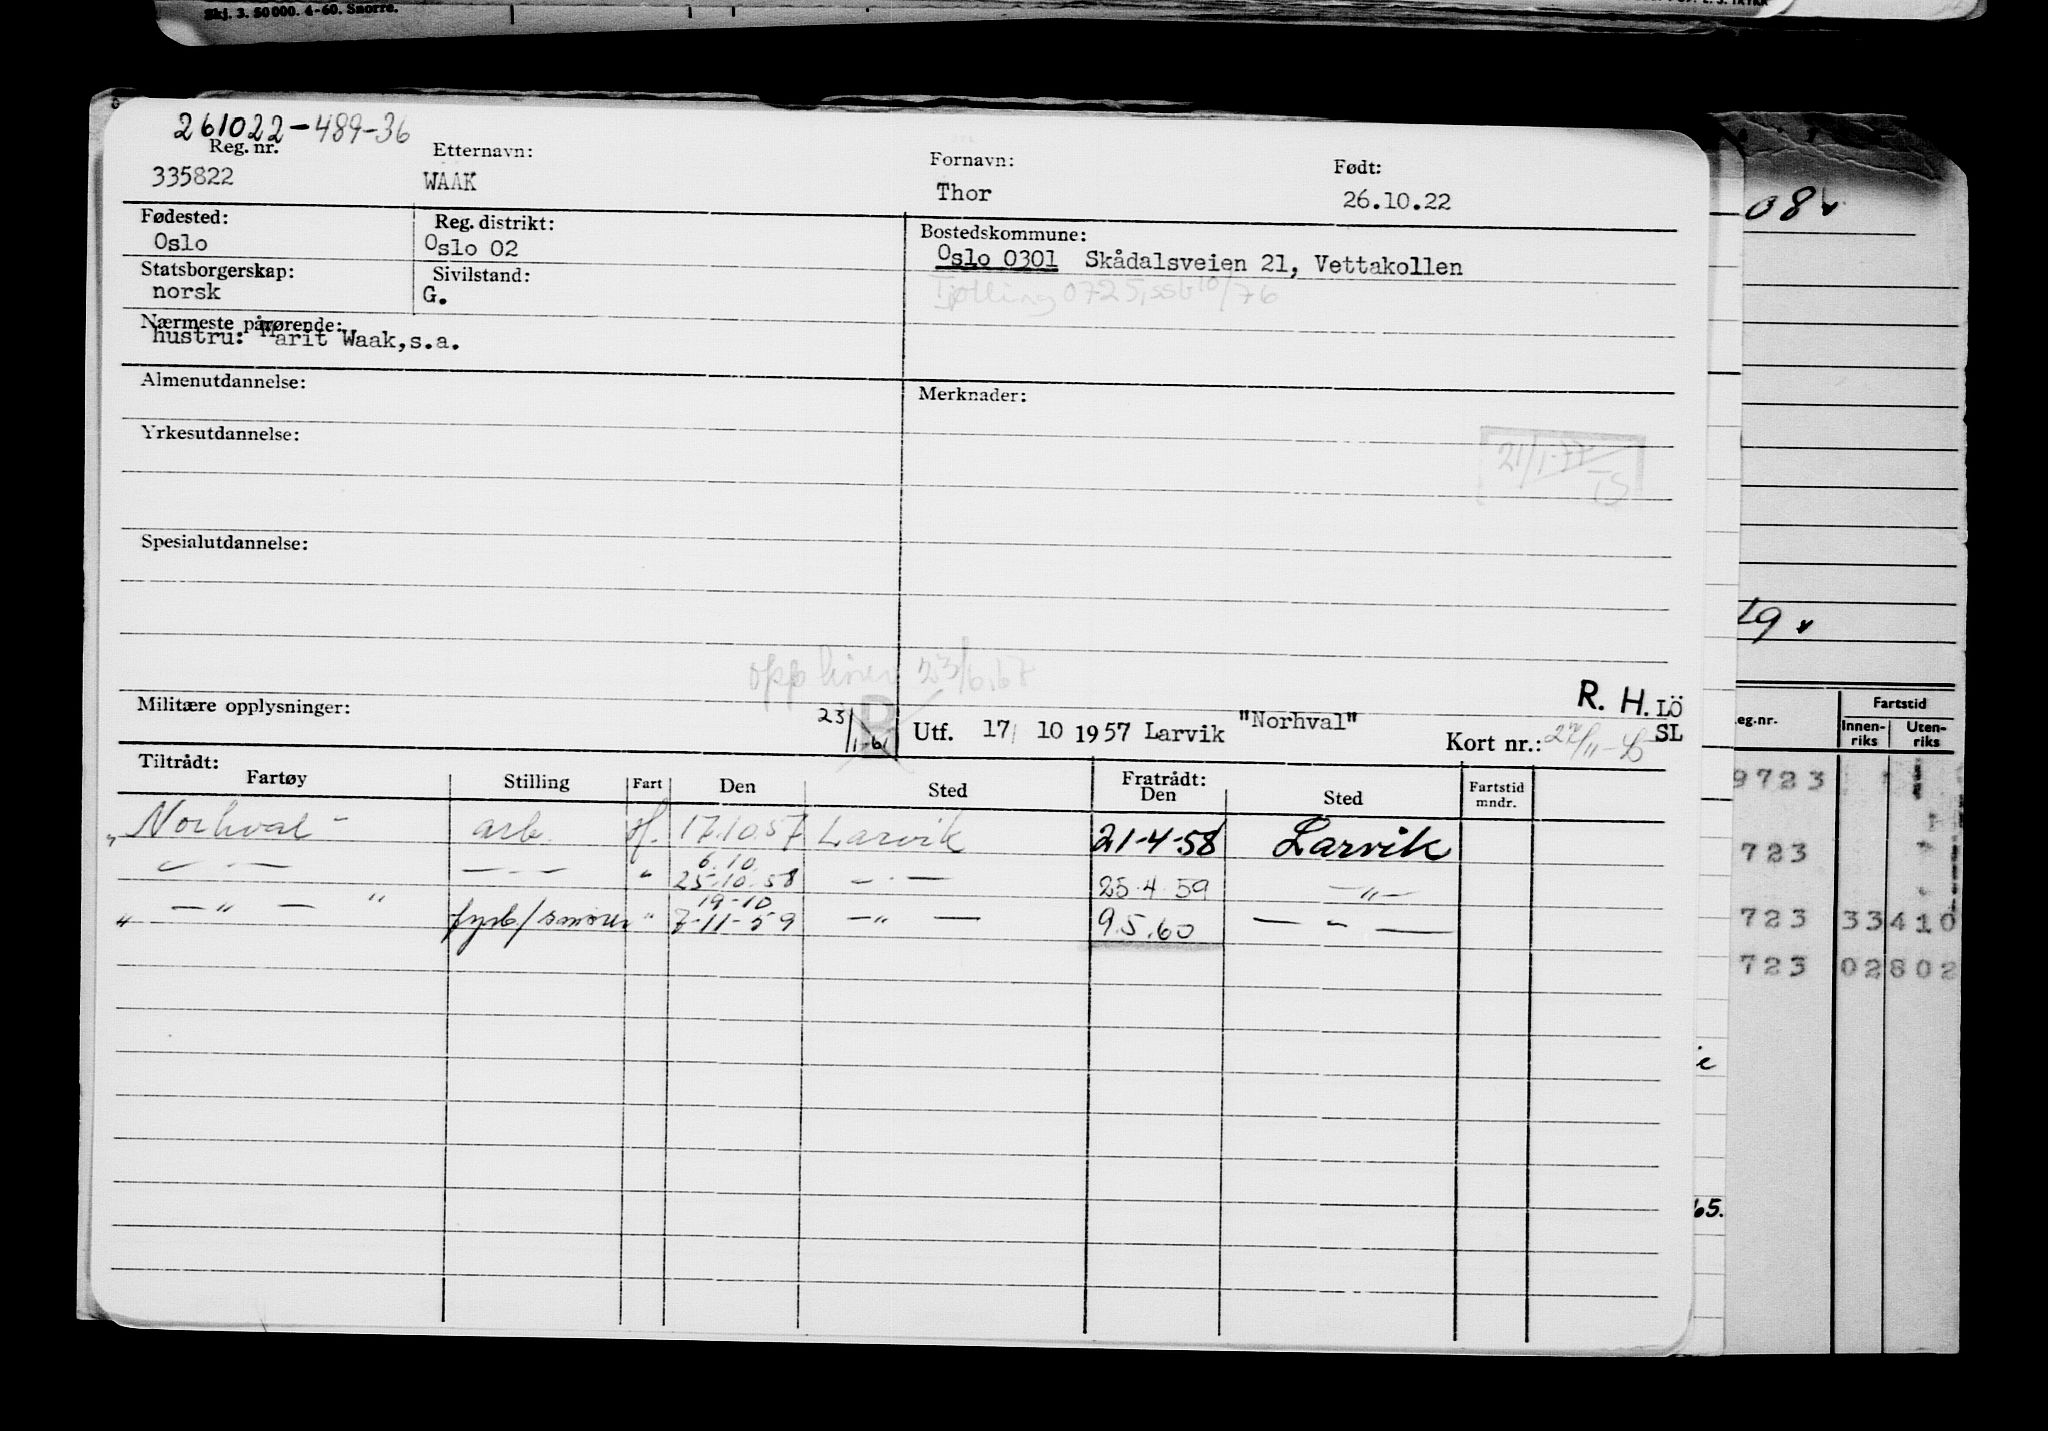 Skj. 3. 50 000. 4-60. Snorre.
261022-489-36
Reg. nr. Etternavn: Fornavn: Født:
335822 WAAK Thor 26.10.22
Fødested: Reg. distrikt: Bostedskommune:
Oslo Oslo 02 Oslo 0301 Skådalsveien 21, Vettakollen
Statsborgerskap: Sivilstand:
norsk G. Tjølling 0725, ssb 10/76
Nærmeste pårørende:
hustru: Marit Waak, s.a.
Almenutdannelse: Merknader:
Yrkesutdannelse:
21/1-77
TS
Spesialutdannelse:
23/6.67
R. H. LÖ
Militære opplysninger: 23/1-61 Utf. 17/ 10 1957 Larvik "Norhval" Kort nr.: SL
Tiltrådt: Fratrådt:
Fartøy Stilling Fart Den Sted Den Sted Fartstid mndr.
"Norhval" arb. 17.10.57 Larvik 21-4-58 Larvik
— " — — " — " 6.10 25.10.58 — " — 25.4.59 — " —
" — " — " fyrb/smører " 19-10 7-11-59 — " — 9.5.60 — " —
08
19
eg.nr. Fartstid
Innen-riks Uten-riks
9723
723
723 33410
723 02802
65.